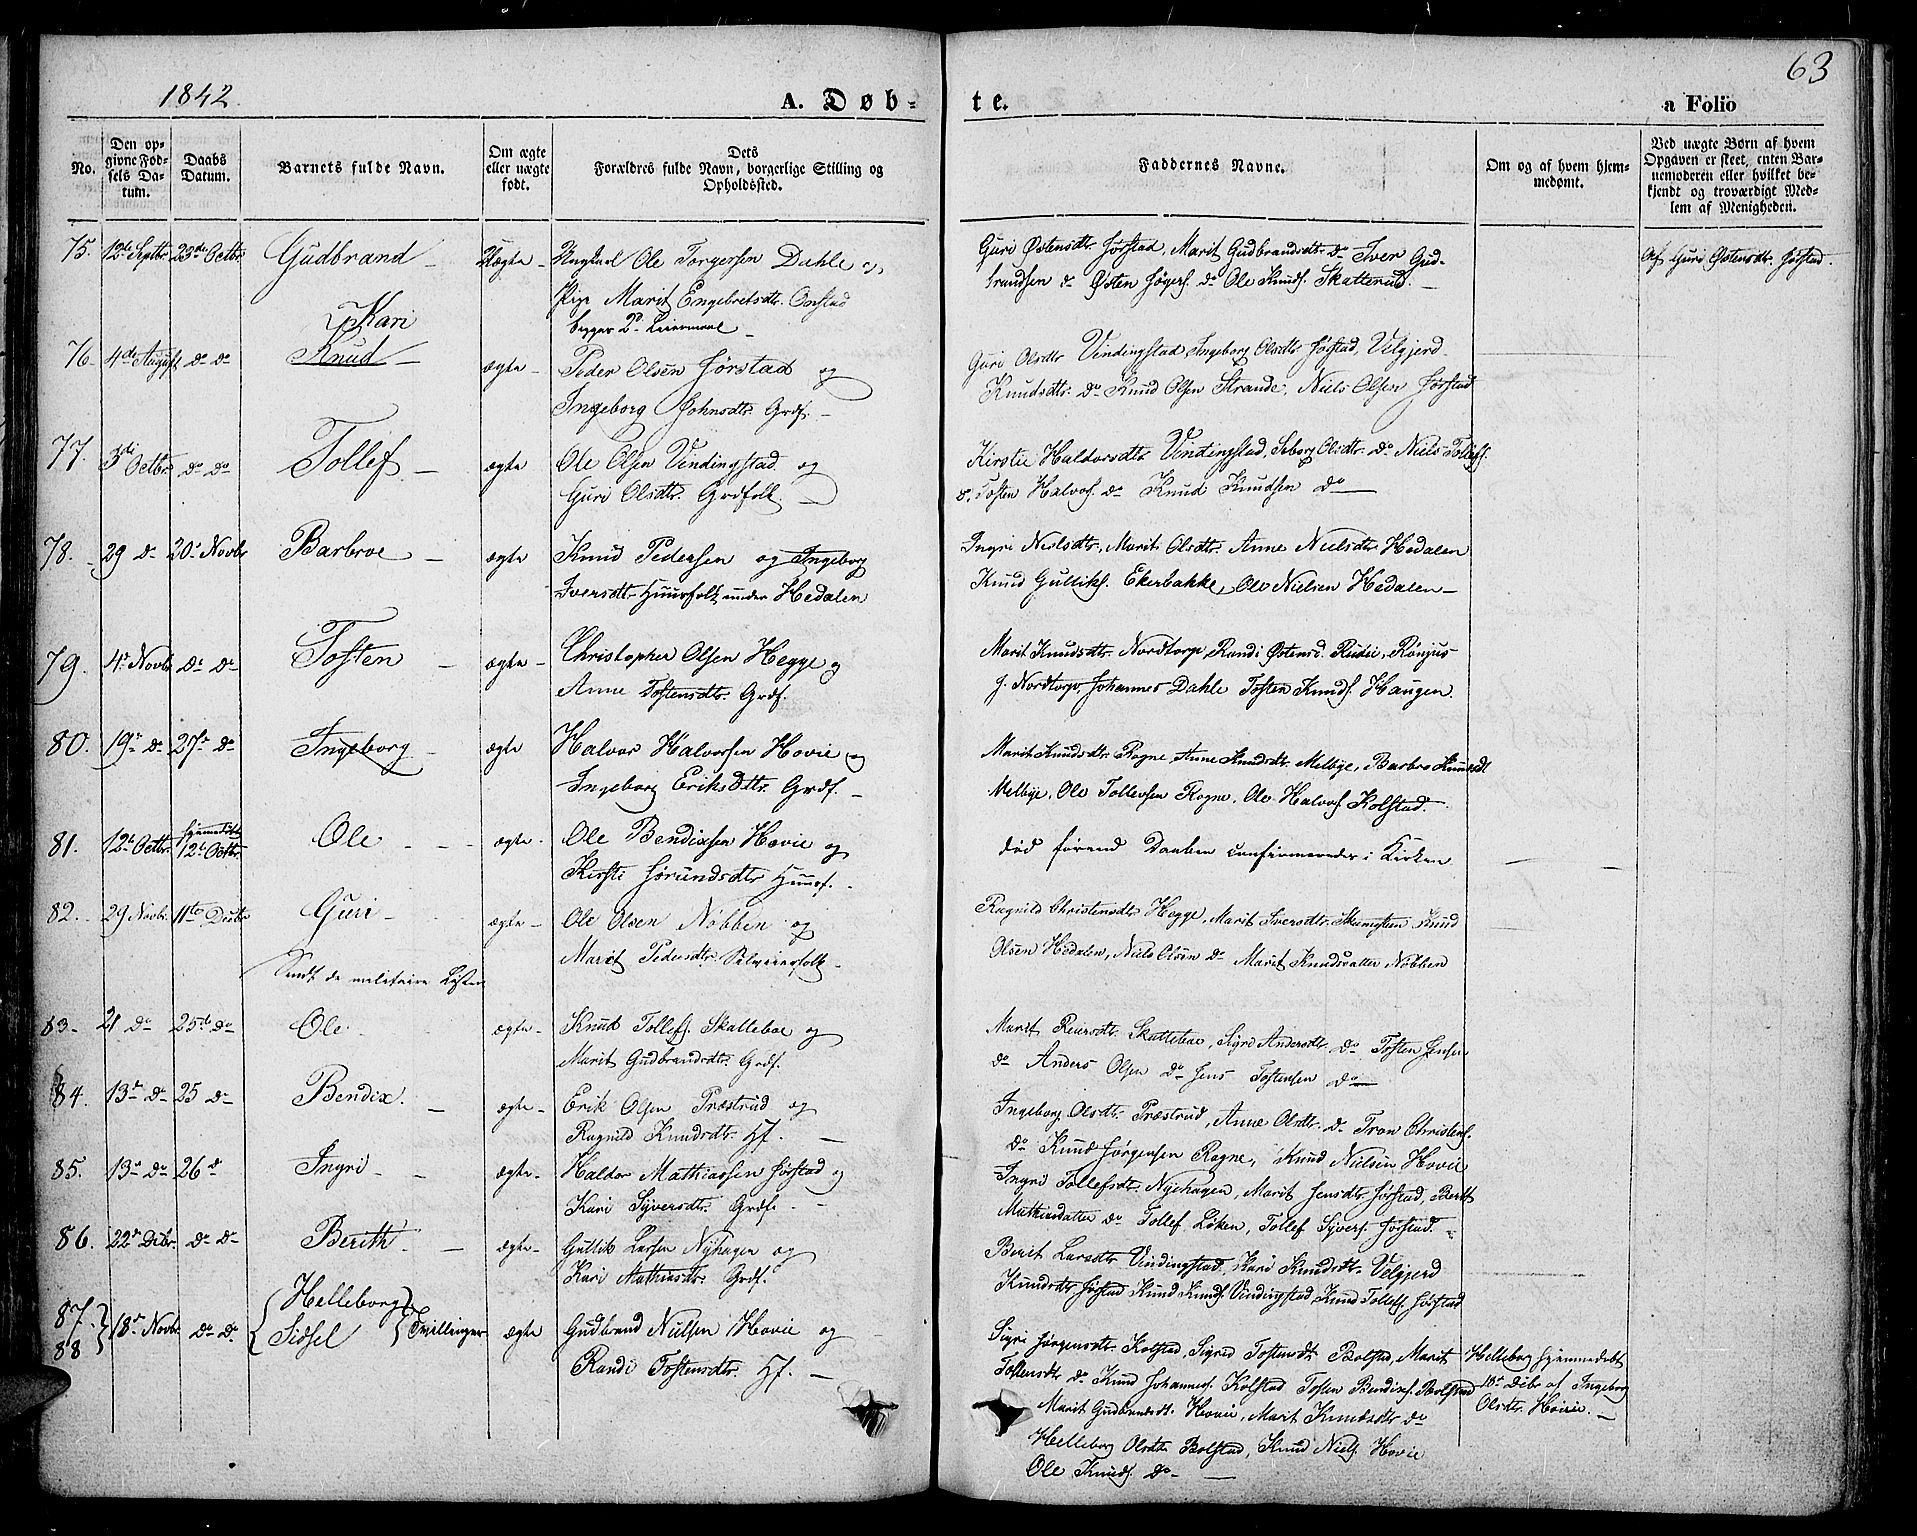 1842.
A. Døb-
te.
63
a Folio
No.
Den op-
givne Fød-
sels Da-
tum.
Daabs
Datum.
Barnets fulde Navn.
Om ægte
eller uægte
født.
Dets
Forældres fulde Navn, borgerlige Stilling og
Opholdssted.
Faddernes Navne.
Om og af hvem hjem-
medømt.
Ved uægte Børn af hvem
Opgaven er skeet, enten Bar-
nemoderen eller hvilket be-
kjendt og troværdigt Med-
lem af Menigheden.
75. 12te Septbr. 23de Octbr. Gudbrand Uægte Ungkarl Ole Torgersen Dahle og
Pige Marit Engebretsdtr. Onstad
begges 2d. Leiermaal
Guri Østensdtr. Jørstad, Marit Gudbrandsdtr. do Iver Gud-
brandsen do Østen do Ole Knuds. Skatterud.
Af Guri Østensdtr. Jørstad.
Kari
76. 4de August do do Knud ægte Peder Olsen Jørstad og
Ingeborg Johnsdtr. Grdf.
Guri Olsdtr. Vindingstad, Ingeborg Olsdtr. Jørstad, Velgjerd
Knudsdtr. do Knud Olsen Strande, Niels Olsen Jørstad
77. 3die Octbr. do do Tollef ægte Ole Olsen Vindingstad og
Guri Olsdtr. Grdfolk
Kirstie Haldorsdtr. Vindingstad, Seborg Olsdtr. do Niels Tollefs.
do Tosten Halvors. do Knud Knudsen do
78. 29 do 20. Novbr Barbroe ægte Knud Pedersen og Ingeborg
Iversdtr. Huusfolk under Hedalen
Ingri Nielsdtr, Marit Olsdtr. Anne Nielsdtr. Hedalen
Knud Gulliks. Ekerbakke, Ole Nielsen Hedalen
79. 4de Novbr. do do Tosten ægte Christopher Olsen Hegge og
Anne Tostensdtr. Grdf.
Marit Knudsdtr. Nordtorp, Randi Østensd. Rudie,
Nordtorp, Johannes Dahle Tosten Knuds. Haugen.
80. 19de do 27de do Ingeborg ægte Halvor Halvorsen Hovie og
Ingeborg Eriksdtr. Grdf.
Marit Knudsdtr. Rogne, Anne Knudsdtr. Melbye, Barbro Knudsdt
Melbye, Ole Tollevsen Rogne, Ole Halvors. Kolstad.
81. 12te Octbr. hjemmedøbt
12te Octbr. Ole ægte Ole Bendixsen Hovie og
Kirsti Jørundsdtr. Huusf.
død førend Daaben confirmeredes i Kirken
82. 29 Novbr. 11te Decbr Guri ægte Ole Olsen Nøbben og
Marit Pedersdtr. Selveierfolk
Ragnild Christensdtr. Hegge, Marit Iversdtr. Knud
Olsen Hedalen, Niels Olsen do Marit Knudsdatter Nøbben
Sendt de militaire Lister
83. 21 do 25de do Ole ægte Knud Tollefs. Skatteboe og
Marit Gudbrandsdtr. Grdf.
Marit Skatteboe, Sigri Andersdtr. do Tosten Jensen
do Anders Olsen do Jens Tostensen do
84. 13de do 25 do Bendix. ægte Erik Olsen Præstrud og
Ragnild Knudsdtr. Hf.
Ingeborg Olsdtr. Præstrud, Anne Olsdtr. do Tron Christens.
do Knud Jørgensen Rogne, Knud Nielsen Hovie
85. 13de do 26 d Ingri ægte Haldor Mathiassen Jørstad og
Kari Syversdtr. Grdf.
Ingri Tollefsdtr. Nyehagen, Marit Jensdtr. Jørstad, Berit
Mathiasdatter do Tollef Løken, Tollef Syvers. Jørstad.
86. 22de Dcbr. do do Berith ægte Gullik Larsen Nyhagen og
Kari Mathiasdtr. Grdf.
Berit Larsdtr. Vindingstad, Kari Knudsdtr. Velgjerd
Knudsdtr. Jørstad Knud Knuds. Vindingstad, Knud Tollefs. Jørstad
87.
88 18de Novbr. do do Helleborg
Sidsel Tvillinger ægte Gudbrand Nielsen Hovie og
Randi Tostensdtr. Hf.
Sigri Jørgensdtr. Kolstad, Sigred Tostensdtr. Bolstad, Marit
Tostensdtr. do Knud Johannes. Kolstad Tosten Bendixs. Bolstad
Marit Gudbrandsdt. Hovie, Marit Knudsdtr. do
Helleborg Olsdtr. Bolstad, Knud Niels. Hovie
Ole Knuds. do
Helleborg hjemmedøbt
10de Dcbr. af Ingeborg
Olsdtr. Hovie.